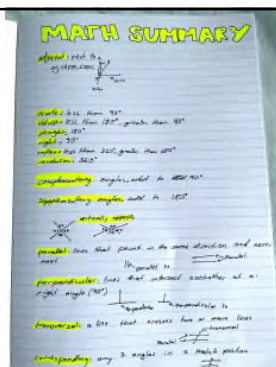 MATH SUMMARY
adjacent: next to
acute: less than 90°
obtuse: less than 180°, greater than 90°
straight: 180°
right: 90°
reflex: less than 360°, greater than 180°
revolution: 360°
complementary angles, add to 90°
supplementary angles, add to 180°
vertically
parallel: lines that point in the same direction and never
meet
parallel to
parallel
perpendicular: lines that intersect eachother at a
right angle (90°)
perpendicular to
transversal: a line that crosses two or more lines
transversal
corresponding: any 2 angles in a match position